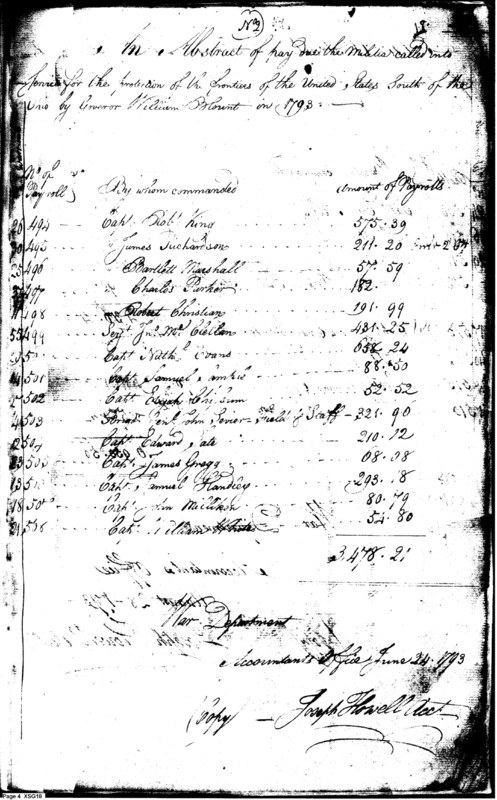 No 2
An Abstract of pay due the Militia called into
Service for the protection of the frontiers of the United States South of the
Ohio by Governor William Blount in 1793
No of
Payroll
By whom commanded
Amount of Payrolls
494 Capt Robt King 575.39
495 James Richardson 211.20
496 Bartlett Marshall 57.59
497 Charles Parker 182.
498 Robert Christian 191.99
499 Serjt Jno McClellan 431.25
Capt Nathl Evans 658.24
501 Capt Samuel 88.50
502 Capt Elijah Chisum 52.52
503 Brigd Genl John Sevier Field & Staff 321.90
504 Capt Edward 210.12
505 Capt James Gregg 68.
Capt Samuel Handley 293.18
Capt Jno Milliken 80.79
508 Capt William White 54.80
3.478.21
War Department
Accountants Office June 24. 1793
(Copy) Joseph Howell Acct
Page 4 XSG18